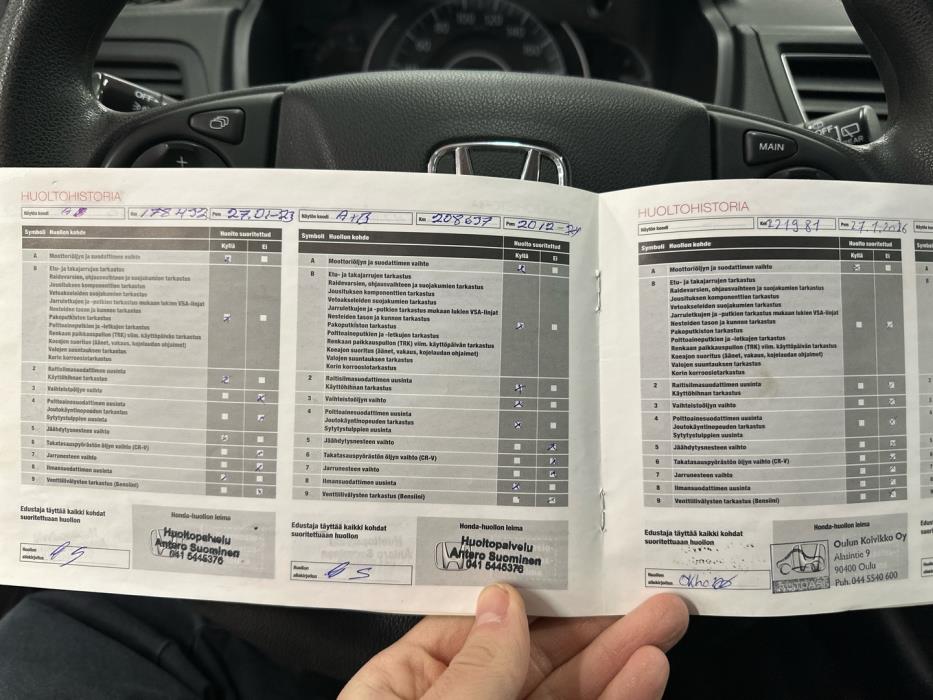 OFF
MAIN
OFF
HUOLTOHISTORIA
Näytön koodi
Km 178492
Pvm 27.01-23
Symboli Huollon kohde Huolto suoritettu
Kyllä Ei
A Moottoriöljyn ja suodattimen vaihto
B Etu- ja takajarrujen tarkastus
Raidevarsien, ohjausvaihteen ja suojakumien tarkastus
Jousituksen komponenttien tarkastus
Vetoakseleiden suojakumien tarkastus
Jarruletkujen ja -putkien tarkastus mukaan lukien VSA-linjat
Nesteiden tason ja kunnon tarkastus
Pakoputkiston tarkastus
Polttoaineputkien ja -letkujen tarkastus
Renkaan paikkauspullon (TRK) viim. käyttöpäivän tarkastus
Koeajon suoritus (äänet, vakaus, kojelaudan ohjaimet)
Valojen suuntauksen tarkastus
Korin korroosiotarkastus
2 Raitisilmasuodattimen uusinta
Käyttöhihnan tarkastus
3 Vaihteistoöljyn vaihto
4 Polttoainesuodattimen uusinta
Joutokäyntinopeuden tarkastus
Sytytystulppien uusinta
5 Jäähdytysnesteen vaihto
6 Takatasauspyörästön öljyn vaihto (CR-V)
7 Jarrunesteen vaihto
8 Ilmansuodattimen uusinta
9 Venttiilivälysten tarkastus (Bensiini)
Edustaja täyttää kaikki kohdat
suoritettuaan huollon
Honda-huollon leima
Huoltopalvelu
Antero Suominen
041 5445376
Huollon
allekirjoitus
Näytön koodi A+B
Km 208697
Pvm 2012-24
Symboli Huollon kohde Huolto suoritettu
Kyllä Ei
A Moottoriöljyn ja suodattimen vaihto
B Etu- ja takajarrujen tarkastus
Raidevarsien, ohjausvaihteen ja suojakumien tarkastus
Jousituksen komponenttien tarkastus
Vetoakseleiden suojakumien tarkastus
Jarruletkujen ja -putkien tarkastus mukaan lukien VSA-linjat
Nesteiden tason ja kunnon tarkastus
Pakoputkiston tarkastus
Polttoaineputkien ja -letkujen tarkastus
Renkaan paikkauspullon (TRK) viim. käyttöpäivän tarkastus
Koeajon suoritus (äänet, vakaus, kojelaudan ohjaimet)
Valojen suuntauksen tarkastus
Korin korroosiotarkastus
2 Raitisilmasuodattimen uusinta
Käyttöhihnan tarkastus
3 Vaihteistoöljyn vaihto
4 Polttoainesuodattimen uusinta
Joutokäyntinopeuden tarkastus
Sytytystulppien uusinta
5 Jäähdytysnesteen vaihto
6 Takatasauspyörästön öljyn vaihto (CR-V)
7 Jarrunesteen vaihto
8 Ilmansuodattimen uusinta
9 Venttiilivälysten tarkastus (Bensiini)
Edustaja täyttää kaikki kohdat
suoritettuaan huollon
Honda-huollon leima
Huoltopalvelu
Antero Suominen
041 5445376
Huollon
allekirjoitus
HUOLTOHISTORIA
Näytön koodi
Km 221981
Pvm 27.1.2026
Symboli Huollon kohde Huolto suoritettu
Kyllä Ei
A Moottoriöljyn ja suodattimen vaihto
B Etu- ja takajarrujen tarkastus
Raidevarsien, ohjausvaihteen ja suojakumien tarkastus
Jousituksen komponenttien tarkastus
Vetoakseleiden suojakumien tarkastus
Jarruletkujen ja -putkien tarkastus mukaan lukien VSA-linjat
Nesteiden tason ja kunnon tarkastus
Pakoputkiston tarkastus
Polttoaineputkien ja -letkujen tarkastus
Renkaan paikkauspullon (TRK) viim. käyttöpäivän tarkastus
Koeajon suoritus (äänet, vakaus, kojelaudan ohjaimet)
Valojen suuntauksen tarkastus
Korin korroosiotarkastus
2 Raitisilmasuodattimen uusinta
Käyttöhihnan tarkastus
3 Vaihteistoöljyn vaihto
4 Polttoainesuodattimen uusinta
Joutokäyntinopeuden tarkastus
Sytytystulppien uusinta
5 Jäähdytysnesteen vaihto
6 Takatasauspyörästön öljyn vaihto (CR-V)
7 Jarrunesteen vaihto
8 Ilmansuodattimen uusinta
9 Venttiilivälysten tarkastus (Bensiini)
Edustaja täyttää kaikki kohdat
suoritettuaan huollon
Honda-huollon leima
Oulun Koivikko Oy
Alasintie 9
90400 Oulu
Puh. 044 5540 600
Huollon
allekirjoitus